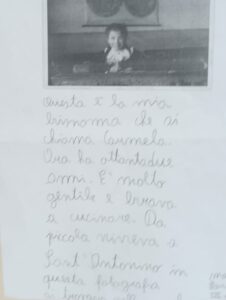 Questa è la mia
bisnonna che si
chiama Carmela.
Ora ha ottantadue
anni. E' molto
gentile e brava
a cucinare. Da
piccola viveva a
Sant'Antonino in
questa fotografia
si trova